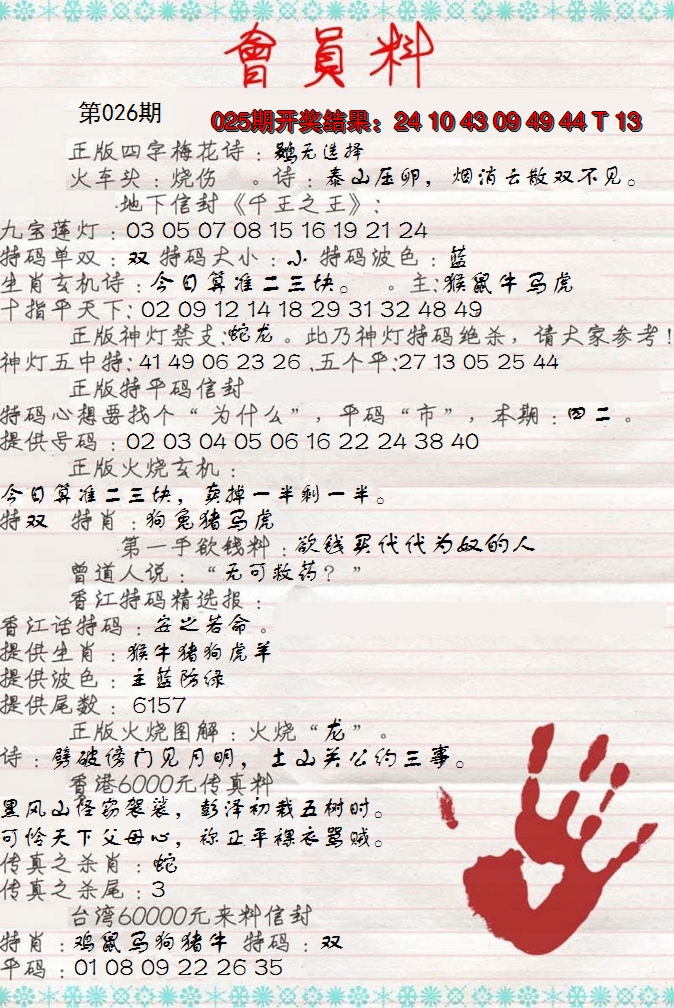 會員料
第026期
025期开奖结果：24 10 43 09 49 44 T 13
正版四字梅花诗：别无选择
火车头：烧伤 。诗：泰山压卵，烟消云散双不见。
地下信封《千王之王》：
九宝莲灯：03 05 07 08 15 16 19 21 24
特码单双：双 特码大小：小 特码波色：蓝
生肖玄机诗：今日算准二三块。 。主:猴鼠牛马虎
十指平天下：02 09 12 14 18 29 31 32 48 49
正版神灯禁支:蛇龙。此乃神灯特码绝杀，请大家参考！
神灯五中特:41 49 06 23 26 .五个平:27 13 05 25 44
正版特平码信封
特码心想要找个“为什么”，平码“市”，本期：四二。
提供号码：02 03 04 05 06 16 22 24 38 40
正版火烧玄机：
今日算准二三块，卖掉一半剩一半。
特双 特肖：狗兔猪马虎
第一手欲钱料：欲钱买代代为奴的人
曾道人说：“无可救药？”
香江特码精选报：
香江话特码：安之若命。
提供生肖：猴牛猪狗虎羊
提供波色：主蓝防绿
提供尾数：6157
正版火烧图解：火烧“龙”。
诗：劈破傍门见月明，土山关公约三事。
香港6000元传真料
黑风山怪窃袈裟，彭泽初栽五树时。
可怜天下父母心，祢正平裸衣骂贼。
传真之杀肖：蛇
传真之杀尾：3
台湾60000元来料信封
特肖：鸡鼠马狗猪牛 特码：双
平码：01 08 09 22 26 35